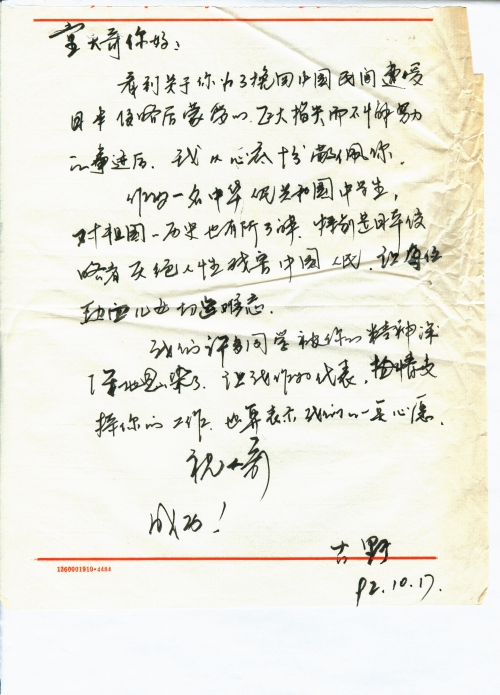 童大哥你好:
看到关于你为了挽回中国民间遭受
日本侵略后蒙受的巨大损失而不懈努力
的事迹后,我从心底十分敬佩你.
作为一名中华人民共和国中学生,
对祖国历史也有所了解.特别是日本侵
略者灭绝人性残害中国人民,让每位
热血儿女切齿难忘.
我们许多同学被你的精神深
深地感染了.让我作为代表,
你的工作.也算表示我们的一点心愿.
祝大哥
成功!
古野
92.10.17.
1260001919·4484